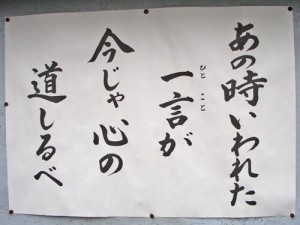 あの時いわれた
一言が
ひと こと
今じゃ心の
道しるべ